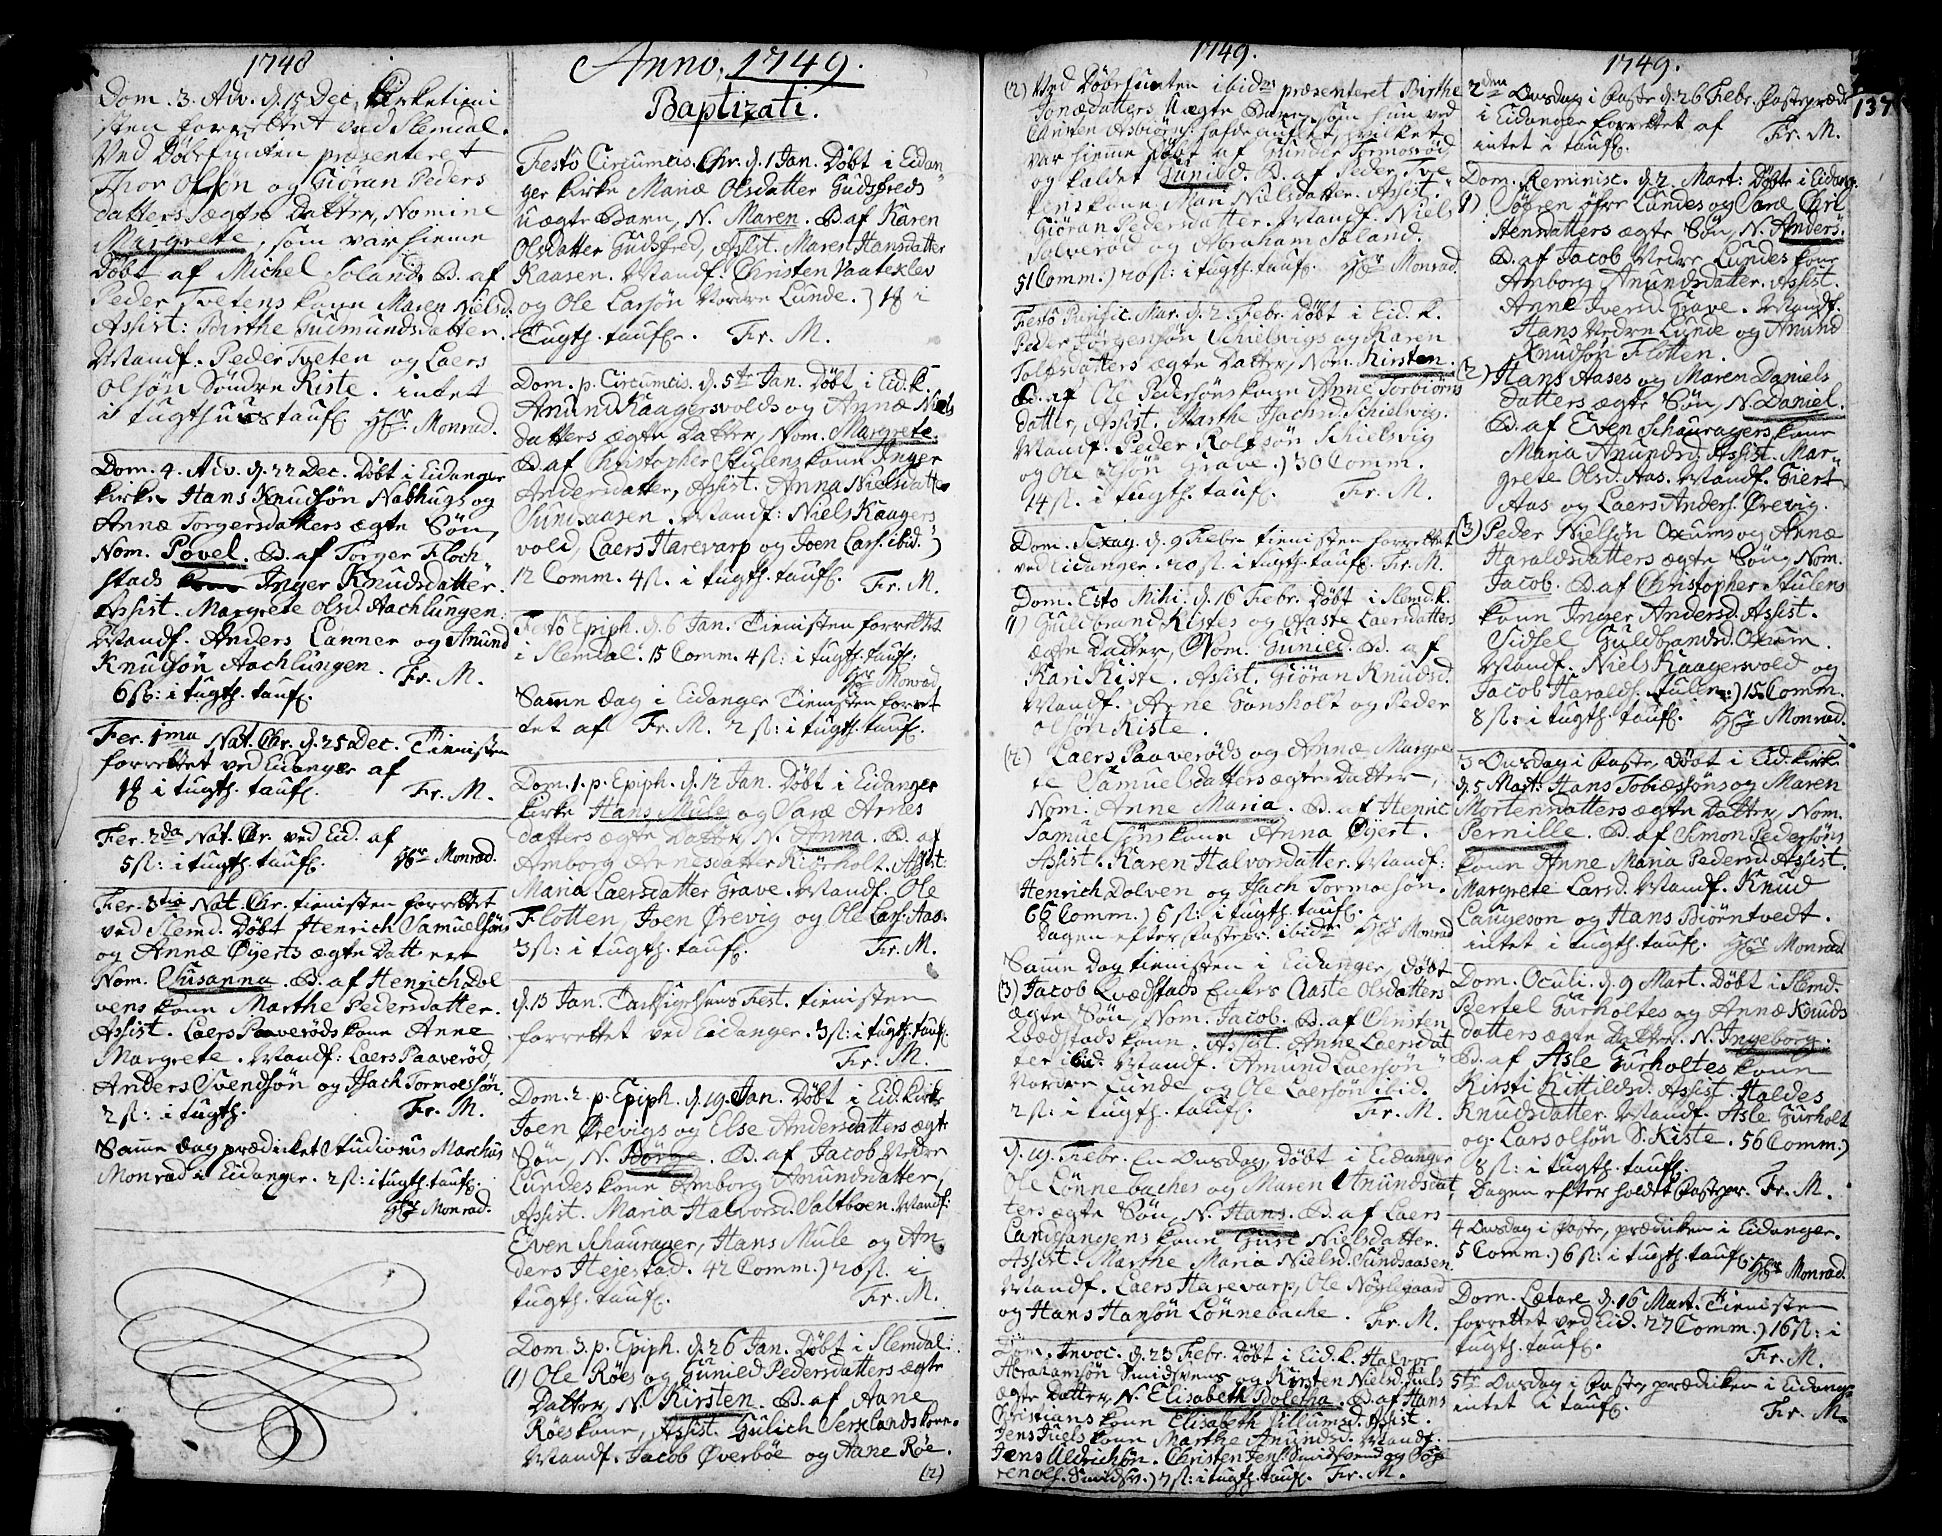 1748
Dom. 3. Adv. d. 15 Dec. Kirketieni
sten forrettet ved Slemdal.
Ved Døbefunten præsenteret
Thor Olsøn og Giøran Peders
datters ægte Datter, Nomine
Margrete, som var hiemme
Døbt af Michel Soland. B. af
Peder Tvetens kone Maren Nielsd.
Assist: Birthe Gudmundsdatter.
Vstandf. Peder Tveten og Laers
Olsøn Søndre Riste. intet
i tugthuus taufl. Hr. Monrad.
Dom. 4. Adv. d. 22 Dec. Døbt i Eidanger
kirke Hans Knudsøn Nabhugs og
Annæ Torgersdatters ægte Søn,
Nom. Povel. B. af Torger Floch
stads Inger Knudsdatter.
Assist. Margrete Olsd. Aachlungen.
Vstandf. Anders Lanner og Anund
Knudsøn Aachlungen. Fr. M.
6 sl: i tugth. taufl.
Fer. 1ma Nat. Chr. d. 25 Dec. Tienisten
forrettet ved Eidanger af
i tugth. taufl. Fr. M.
Fer. 2da Nat. Chr. ved Eid. af
5 sl: i tugth. taufl. Hr. Monrad.
Fer. 3tia Nat. Chr. tienisten forrettet
ved Slemd. Døbt Henrich Samuelsøns
og Annæ Øyerts ægte Datter
Nom. Susanna. B. af Henrich Dol
vens kone Marthe Pedersdatter.
Assist. Laers Paaverøds kone Anne
Margrete. Vstandf: Laers Paaverød
Anders Svendsøn og Isach Tormoesøn.
2 sl: i tugth. Fr. M.
Samme dag prædicket Studiosus Marchus
Monrad i Eidanger. 2 sl: i tugth. taufl.
Hr. Monrad.
Anno. 1749.
Baptizati.
Festo Circumcis. Chr. d. 1 Jan. Døbt i Eidan
ger kirke Mariæ Olsdatter Gudsfreds
Uægte Barn, N. Maren. B. af Karen
Olsdatter Gudsfred, Assist. Maren Hansdatter
Raasen. Vstandf. Christen Vaateklev
og Ole Larsøn Nordre Lunde.) i
Tugth. taufl. Fr. M.
Dom. p. Circumcis. d. 5te Jan. Døbt i Eid. K.
Anund Kaagersvolds og Annæ Niels
datters ægte Datter, Nom. Margrete.
B. af Christopher Stulens kone Inger
Andersdatter, Assist. Anna Nielsdatter
Sundsaasen. Vstandf: Niels Kaagers
vold, Laers Harevarp og Joen Lars. ibid.)
12 Comm. 4 sl. i tugth. taufl. Fr. M.
Festo Epiph. d. 6 Jan. Tienisten forrettet
i Slemdal. 15 Comm. 4 sl: i tugth. taufl:
Hr. Monrad
Samme dag i Eidanger Tienisten forret
tet af Fr. M. 2 sl: i tugth. taufl.
Dom. 1. p. Epiph. d. 12 Jan. Døbt i Eidanger
kirke Hans Mules og Saræ Arnes
datters ægte Datter, N. Anna. B. af
Amborg Arnesdatter Kiørholt. Assist.
Maria Laersdatter Grave. Vstandf. Ole
Flotten, Joen Ørevig og Ole Lars. Aas.
3 sl: i tugth. taufl. Fr. M.
d. 13 Jan. Tacksigelsens Fest. tienisten
forrettet ved Eidanger. 3 sl: i tugth. taufl.
Fr. M.
Dom. 2. p. Epiph. d. 19. Jan. Døbt i Eid. kirke
Joen Ørevigs og Else Andersdatters ægte
Søn, N. Børge. B. af Jacob Nedre
Lundes kone Amborg Anundsdatter,
Assist. Maria Halvorsd. Saltboen. Vstandf:
Even Schaurager, Hans Mule og An
ders Hejestad. 42 Comm.) 20 sl. i
tugth. taufl. Fr. M.
Dom. 3. p. Epiph. d. 26 Jan. Døbt i Slemdal.
(1) Ole Røes og Gunild Pedersdatters ægte
Datter, N. Kirsten. B. af Aane
Røes kone, Assist. Gulich Serklands kone.
Vstandf. Jacob Øverbøe og Aane Røe.
(2)
1749.
(2) Ved Døbefunten ibidm præsenteret Birthe
Jonædatters Uægte Barn, som hun ved
Christen Asbiørns. hafde auflet, hvilket
var hiemme døbt af Gunder Tormosrød
og kaldet Gunild. B. af Peder Tve
tens kone Mari Nielsdatter. Assist.
Giøran Pedersdatter. Vstandf. Niels
Solverød og Abraham Soland.
51 Comm.) 20 sl: i tugth. taufl. Hr. Monrad.
Festo Purific. Mar. d. 2. Febr. Døbt i Eid. k.
Peder Jørgensøn Schielsvigs og Karen
Tolfsdatters ægte Datter, Nom. Kirsten.
B. af Ole Pedersøns kone Anne Torbiørns
datter, Assist. Marthe Isachsd. Schielsvig.
Vstandf. Peder Rolfsøn Schielsvig
og Ole Olsøn Grave.) 30 Comm.
14 sl. i tugth. taufl. Fr. M.
Dom. Sexag. d. 9 Febr. tienisten forrettet
ved Eidanger. 20 sl: i tugth. taufl. Fr. M.
Dom. Esto Mihi. d. 16 Febr. Døbt i Slemd. k.
(1) Guldbrand Ristes og Aaste Laersdatters
ægte Datter, Nom. Gunied. B. af
Kari Riste. Assist. Giøran Knudsd.
Vstandf. Arne Gunsholt og Peder
Olsøn Riste.
(2) Laers Paaverøds og Annæ Margre
te Samuelsdatters ægte Datter,
Nom. Anne Maria. B. af Henric
Samuelsøns kone Anna Øyert.
Assist. Karen Halvorsdatter. Vstandf:
Henrich Dolven og Isach Tormoesøn.
66 Comm.) 6 sl: i tugth. taufl.
Dagen efter fastepr. ibidm Hr. Monrad
Samme dag tienisten i Eidanger, døbt
(3) Jacob Qvædstads Enkes Aaste Olsdatters
ægte Søn, Nom. Jacob. B. af Christen
Qvædstads kone. Assist. Anne Laersdat
ter ibid. Vstandf. Amund Laersøn
Nordre Lunde og Ole Laersøn ibid.
2 sl: i tugth. taufl. Fr. M.
d. 19. Febr. En Onsdag, døbt i Eidanger
Ole Lønnebaches og Maren Anundsdat
ters ægte Søn, N. Hans. B. af Laers
Landgangens kone Guri Nielsdatter.
Assist. Marthe Maria Nielsd. Sundsaasen.
Vstandf. Laers Harevarp, Ole Nøglegaard
og Hans Hansøn Lønnebache. Fr. M.
Dom. Invoc. d. 23 Febr. Døbt i Eid. k. Halvor
Abrahamsøn Smidsvens og Kirsten Nielsd. Juels
ægte Datter, N. Elisabeth Boletha. B. af Hans
Christians kone Elisabeth Villumsd. Assist.
Jens Juels kone Marthe Anundsd. Vstandf.
Jens Aldrichsøn. Christen Jens. Smidsvend og Sør
ren Ols. Smidsv.) 7 sl: i tugth. taufl. Fr. M.
1749.
137
2den Onsdag i Faste d. 26 Febr. Fasteprædk
i Eidanger forrettet af
intet i taufl. Fr. M.
Dom. Reminisc. d. 2. Mart: Døbt i Eidang.
(1) Søfren øfre Lundes og Saræ Chri
stensdatters ægte Søn, N. Anders.
B. af Jacob Nedre Lundes kone
Amborg Anundsdatter. Assist.
Anne Iversd. Grave. Vstandf.
Hans Nedre Lunde og Anund
Knudsøn Flotten.
(2) Hans Aases og Maren Daniels
datters ægte Søn, N. Daniel.
B. af Even Schauragers kone
Maria Anundsd. Assist. Mar
grete Olsd. Aas. Vstandf. Giert
Aas og Laers Anders. Ørevig.
(3) Peder Nielsøn Oxums og Annæ
Haraldsdatters ægte Søn, Nom.
Jacob. B. af Christopher Stulens
kone Inger Andersd. Assist.
Sidsel Guldbrandsd. Oxum.
Vstandf. Niels Kaagersvold og
Jacob Haralds. Stulen:) 15 Comm.
8 sl: i tugth. taufl. Hr. Monrad.
3 Onsdag i Faste, Døbt i Eid. kirke
d. 5 Mart: Hans Tobiæssøns og Maren
Mortensdatters ægte Datter, Nom.
Pernille. B. af Simon Pedersøns
kone Anne Maria Pedersd. Assist.
Margrete Larsd. Vstandf. Knud
Laugeson og Hans Biørntvedt.
intet i tugth. taufl. Hr. Monrad
Dom. Oculi. d. 9 Mart. Døbt i Slemd.
Bertel Gurholtes og Annæ Knuds
datters ægte Datter. N. Ingeborg.
B. af Asle Gurholtes kone
Kirsti Kittildsd. Assist. Haldes
Knudsdatter. Vstandf. Asle Gurholt
og Lars Olsøn S. Riste. 56 Comm.)
8 sl: i tugth. taufl.
Dagen efter holdet Fastepr. Fr. M.
4 Onsdag i Faste, prædiken i Eidanger.
5 Comm.) 6 sl: i tugth. taufl. Hr. Monrad.
Dom. Lætare d. 16 Mart. Tienisten
forrettet ved Eid. 27 Comm.) 16 sl: i
tugth. taufl. Fr. M.
5te Onsdag i Faste, prædiken i Eidang.
intet i taufl. Fr. M.